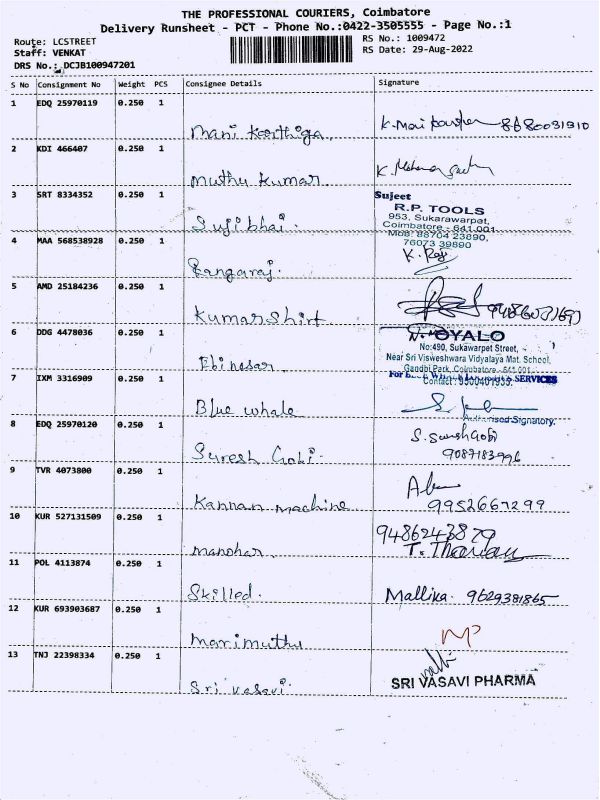 THE PROFESSIONAL COURIERS, Coimbatore
Delivery Runsheet - PCT - Phone No.:0422-3505555 - Page No.:1
Route: LCSTREET
RS No.: 1009472
Staff: VENKAT
RS Date: 29-Aug-2022
DRS No.: DCJB100947201
S No Consignment No Weight PCS Consignee Details Signature
1 EDQ 25970119 0.250 1
Mani Karthiga. 8680031910
2 KDI 466407 0.250 1
Muthu Kumar. K.
3 SRT 8334352 0.250 1
Sujeet
R.P. TOOLS
953, Sukarawarpet,
Coimbatore - 641 001
Mob: 88704 23890,
76073 39890
Sujibhai.
4 MAA 568538928 0.250 1
K. Raj
Rangaraj.
5 AMD 25184236 0.250 1
Kumar Shirt
6 DDG 4478036 0.250 1
OYALO
No:490, Sukawarpet Street,
Near Sri Visweshwara Vidyalaya Mat. School,
Gandhi Park, Coimbatore - 641 001.
Contact: 9500401935.
Ebinesar.
7 IXM 3316909 0.250 1
SERVICES
Blue whale
Authorised Signatory.
8 EDQ 25970120 0.250 1
Suresh Gobi.
S. Suresh Gobi
9087183996
9 TVR 4073800 0.250 1
Kannan machine
9952667299
10 KUR 527131509 0.250 1
manohar.
9486243879
11 POL 4113874 0.250 1
Skilled.
Mallika. 9629381865
12 KUR 693903687 0.250 1
Marimuthu
MP
13 TNJ 22398334 0.250 1
Sri vasavi.
SRI VASAVI PHARMA